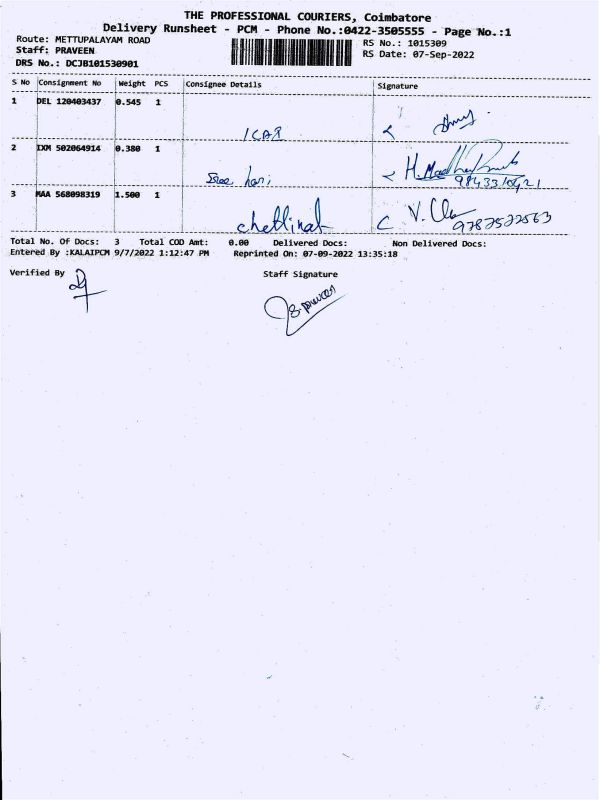 THE PROFESSIONAL COURIERS, Coimbatore
Delivery Runsheet - PCM - Phone No.:0422-3505555 - Page No.:1
Route: METTUPALAYAM ROAD
RS No.: 1015309
Staff: PRAVEEN
RS Date: 07-Sep-2022
DRS No.: DCJB101530901
S No Consignment No Weight PCS Consignee Details Signature
1 DEL 120403437 0.545 1
ICAR
2 IXM 502064914 0.380 1
Sree hari
3 MAA 568098319 1.500 1
chettinat
Total No. Of Docs: 3 Total COD Amt: 0.00 Delivered Docs: Non Delivered Docs:
Entered By :KALAIPCM 9/7/2022 1:12:47 PM Reprinted On: 07-09-2022 13:35:18
Verified By Staff Signature